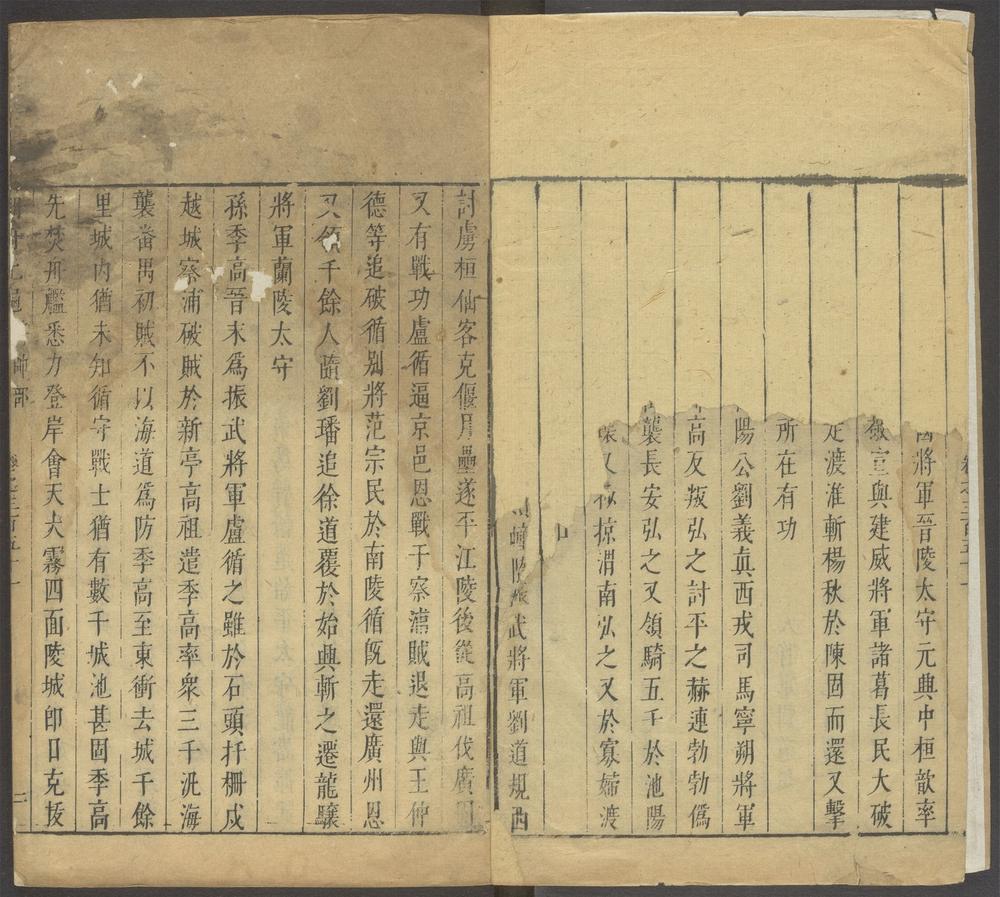 將軍晉陵太守元興中桓歆率
宣與建威將軍諸葛長民大破
渡淮斬楊秋於陳固而還又擊
所在有功
陽公劉義真西戎司馬寧朔將軍
高反叛弘之討平之赫連勃勃僞
襲長安弘之又領騎五千於池陽
又掠渭南弘之又於寡婦渡
武將軍劉道規西
討虜桓仙客克偃月壘遂平江陵後從高祖伐廣固
又有戰功盧循逼京邑恩戰于察瀟賊退走與王仲
德等追破循别將范宗民於南陵循旣走還廣州恩
又領千餘人隨劉璠追徐道覆於始興斬之遷龍驤
將軍蘭陵太守
孫季高晉末爲振武將軍盧循之雖於石頭扞柵戍
越城察浦破賊於新亭高祖遣季高率衆三千汎海
襲畨禺初賊不以海道爲防季高至東衝去城千餘
里城内猶未知循守戰士猶有數千城池甚固季高
先焚舟艦悉力登岸會天大霧四面陵城卽日克拔
帥部
二